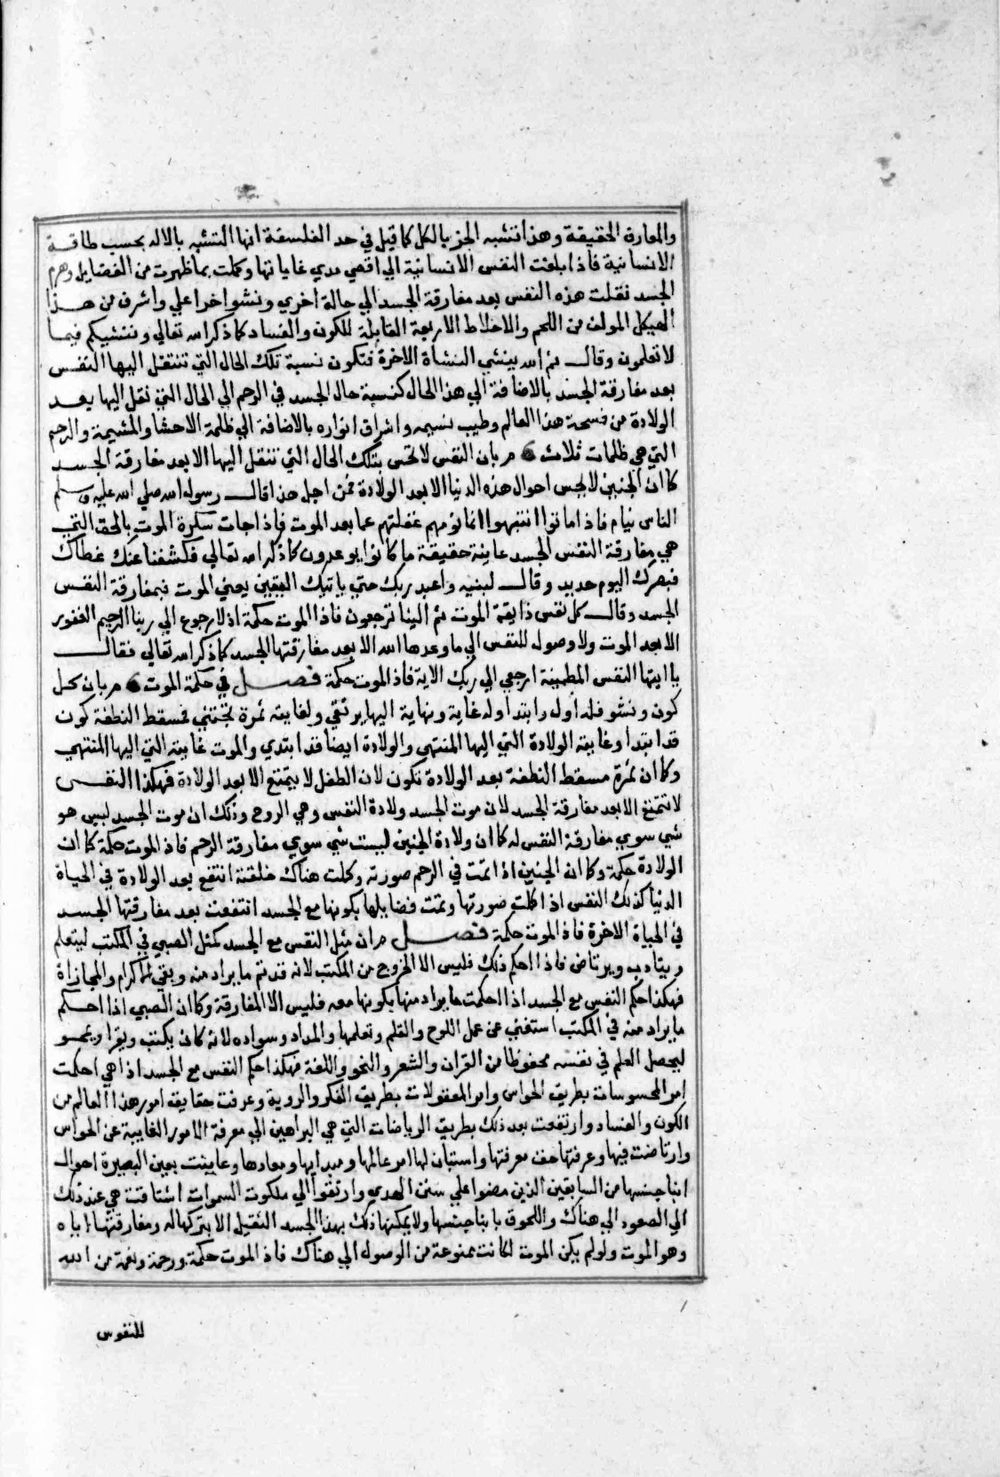 والمعارف الحقيقة وهذا تشبه الجز بالكل كما قيل في حد الفلسفة انها التشبه بالاله بحسب طاقة
الانسانية فاذا بلغت النفس الانسانية الي اقصي مدي غاياتها وكملت بما ظهرت من الفضايل وهرم
الجسد نقلت هذه النفس بعد مفارقة الجسد الي حالة اخري ونشو اخر اعلي واشرف من هذا
الهيكل المولف من اللحم والاخلاط الاربعة القابلة للكون والفساد كما ذكر الله تعالي وننشيكم فيما
لا تعلمون وقال ثم الله ينشي النشاة الاخرة فتكون نسبة تلك الحال التي تنتقل اليها النفس
بعد مفارقة الجسد بالاضافة الي هذا الحال كنسبة حال الجسد في الرحم الي الحال التي نقل اليها بعد
الولادة من فسحة هذا العالم وطيب نسيمه واشراق انواره بالاضافة الي ظلمة الاحشا والمشيمة والرحم
التي هي ظلمات ثلاث بان النفس لا تحس بتلك الحال التي تنقل اليها الا بعد مفارقة الجسد
كما ان الجنين لا يحس احوال هذه الدنيا الا بعد الولادة فمن اجل هذا قال رسول الله صلي الله عليه وسلم
الناس نيام فاذا ماتوا انتبهوا انما نومهم غفلتهم عما بعد الموت فاذا جات سكرة الموت بالحق التي
هي مفارقة النفس الجسد عاينة حقيقة ما كانوا يوعدون كما ذكر الله تعالي فكشفنا عنك غطاك
فبصرك اليوم حديد وقال لنبيه واعبد ربك حتي ياتيك اليقين يعني الموت فبمفارقة النفس
الجسد وقال كل نفس ذايقة الموت ثم الينا ترجعون فاذا الموت حكمة اذ لا رجوع الي ربنا الرحيم الغفور
الا بعد الموت ولا وصول للنفس الي ما وعدها الله الا بعد مفارقتها الجسد كما ذكر الله تعالي فقال
يا ايتها النفس المطمينة ارجعي الي ربك الاية فاذ الموت حكمة فصل في حكمة الموت بان كل
كون ونشو فله اول وابتدا وله غاية ونهاية اليها يرتقي ولغايته ثمرة تجتني فمسقط النطفة كون
قد ابتدا وغايته الولادة التي اليها المنتهي والولادة ايضا قد ابتدي والموت غايته التي اليها المنتهي
وكما ان ثمرة مسقط النطفة بعد الولادة تكون لان الطفل لا يتمتع الا بعد الولادة فهكذا النفس
لا تتمتع الا بعد مفارقة الجسد لان موت الجسد ولادة النفس وهي الروح وذلك ان موت الجسد ليس هو
شي سوي مفارقة النفس له كما ان ولادة الجنين ليست شي سوي مفارقة الرحم فاذ الموت حكمة كما ان
الولادة حكمة وكما ان الجنين اذا تمت في الرحم صورته وكملت هناك خلقته انتفع بعد الولادة في الحياة
الدنيا كذلك النفس اذا كملت صورتها وتمت فضايلها بكونها مع الجسد انتفعت بعد مفارقتها الجسد
في الحياة الاخرة فاذ الموت حكمة فصل ان مثل النفس مع الجسد كمثل الصبي في المكتب ليتعلم
ويتادب ويرتاض فاذا احكم ذلك فليس الا الخروج من المكتب لانه قد تم ما يراد منه وبقي الاكرام والمجازاة
فهكذا حكم النفس مع الجسد اذا احكمت ما يراد منها بكونها معه فليس الا المفارقة وكما ان الصبي اذا احكم
ما يراد منه في المكتب استغني عن حمل اللوح والقلم وتعلمها والمداد وسواده لانه كان يكتب ويقرا ويمحو
ليحصل العلم في نفسه محفوظا من القران والشعر والنحو واللغة فهكذا حكم النفس مع الجسد اذا هي احكمت
امر المحسوسات بطريق الحواس وامر المعقولات بطريق الفكر والروية وعرفت حقايق امور هذا العالم من
الكون والفساد وارتفعت بعد ذلك بطريق الرياضات التي هي البراهين الي معرفة الامور الغايبة عن الحواس
وارتاضت فيها وعرفتها حق معرفتها واستبان لها امر عالمها ومبدايها ومعادها وعاينت بعين البصيرة احوال
ابنا جنسها من السابقين الذين مضوا علي سنن الهدي وارتقوا الي ملكوت السموات اشتاقت هي عند ذلك
الي الصعود الي هناك واللحوق بابنا جنسها ولا يمكنها ذلك بهذا الجسد الثقيل الا بتركها له ومفارقتها اياه
وهو الموت ولو لم يكن الموت لكانت ممنوعة من الوصول الي هناك فاذ الموت حكمة ورحمة ونعمة من الله
للنفوس